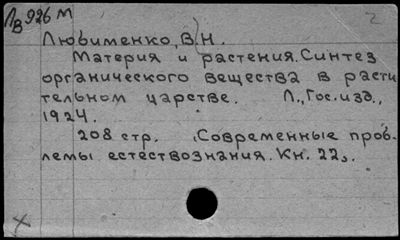 Л 926 М
В
2
Любименко, В.Н.
Материя и растения. Синтез
органического вещества в расти
тельном царстве. Л., Гос. изд.,
1924.
208 стр. (Современные проб-
лемы естествознания. Кн. 22).